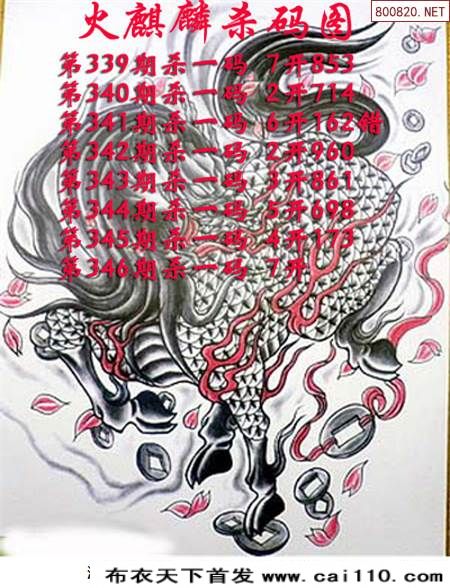 火麒麟杀码图
800820.NET
第339期杀一码 7开853
第340期杀一码 2开714
第341期杀一码 6开162错
第342期杀一码 2开960
第343期杀一码 3开861
第344期杀一码 5开698
第345期杀一码 4开173
第346期杀一码 7开
布衣天下首发 www.cai110.com